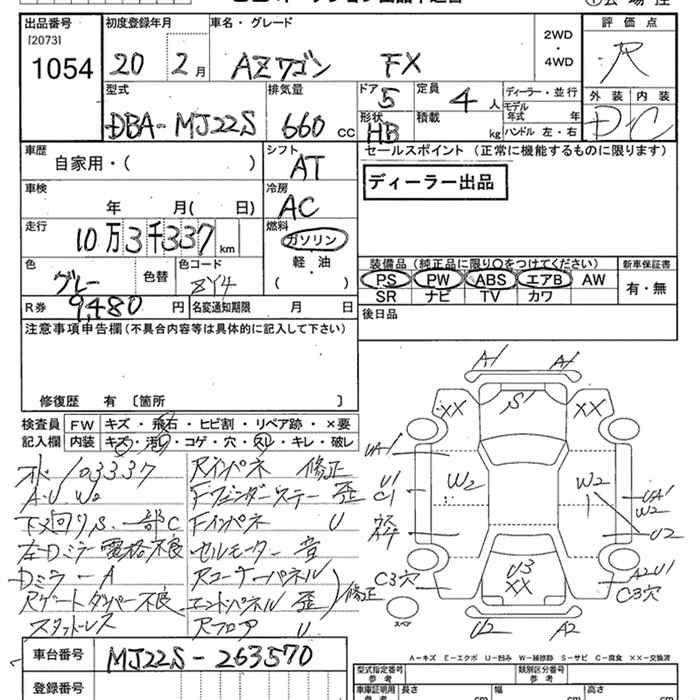 出品番号 初度登録年月 車名・グレード 評価点
[2073] 1054 20 2月 AZワゴン FX 2WD・4WD R
型式 排気量 ドア 5 定員 4人 ディーラー・並行 外装 内装
DBA-MJ22S 660 CC 形状 HB 積載 kg モデル年式 年 ハンドル 左・右 D C
車歴 シフト セールスポイント(正常に機能するものに限ります)
自家用・( ) AT
ディーラー出品
車検 冷房
年 月( 日) AC
走行 燃料
10万3千337km ガソリン
軽・油
( )
装備品(純正品に限り○をつけてください) 新車保証書
PS PW ABS エアB AW 有・無
SR ナビ TV カワ
色 色替 色コード
グレー ZY4
R券 9,480円 名変通知期限 月 日
後日品
注意事項申告欄(不具合内容等は具体的に記入して下さい)
修復歴 有〔箇所 〕
検査員 FW キズ・飛石・ヒビ割・リペア跡・×要
記入欄 内装 キズ・汚れ・コゲ・穴・スレ・キレ・破レ
103337 Rインパネ 修正
A・U W2 Fフェンダーステー 歪
下回りS、一部C Fインパネ U
右Dミラー電格不良 セルモーター音
Dミラー A Rコーナーパネル
Rゲートダンパー不良 エンドパネル 歪 修正
スタットレス Rフロア U
A1 A1
XX S1 XX
UA1
U1
C1 W2 W2 UA1
W2
ウス
A4 U2
C3穴 U3
XX A2U1
C3穴
スペア
U2 A2
A-キズ E-エクボ U-凹み W-補修跡 S-サビ C-腐食 ××-交換済
車台番号 MJ22S-263570
登録番号
型式指定番号 類別区分番号
参考
車庫証明用 長さ 幅 高さ
参考 cm cm cm